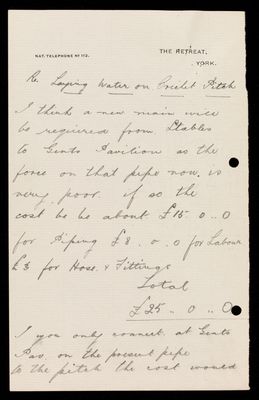 NAT. TELEPHONE Nº 112.
THE RETREAT,
YORK.
Re. Laying Water on Cricket Pitch
I think a new main will
be required from Stables
to Gents Pavilion as the
force on that pipe now is
very poor. if so the
cost be be about £15. 0..0
for Piping £8. 0. 0 for Labour
for Hose & Fittings
Total
£25 .. 0 .. 0
I you only connect at Gents
Pav. on the present pipe
to the pitch the cost would